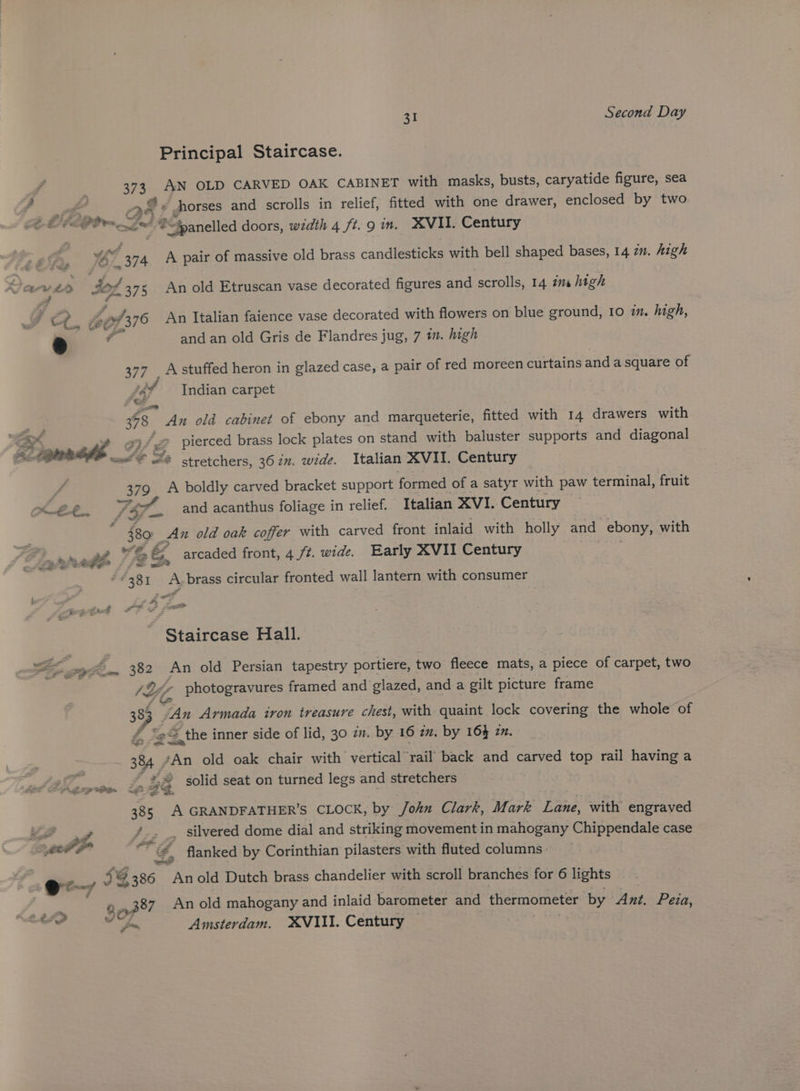 31 Second Day
Principal Staircase.
373 AN OLD CARVED OAK CABINET with masks, busts, caryatide figure, sea
horses and scrolls in relief, fitted with one drawer, enclosed by two
panelled doors, width 4 ft. 9 in. XVII. Century
374 A pair of massive old brass candlesticks with bell shaped bases, 14 in. high
375 An old Etruscan vase decorated figures and scrolls, 14 ins high
376 An Italian faience vase decorated with flowers on blue ground, 10 in. high,
and an old Gris de Flandres jug, 7 in. high
377 A stuffed heron in glazed case, a pair of red moreen curtains and a square of
Indian carpet
378 An old cabinet of ebony and marqueterie, fitted with 14 drawers with
pierced brass lock plates on stand with baluster supports and diagonal
stretchers, 36 in. wide. Italian XVII. Century
379 A boldly carved bracket support formed of a satyr with paw terminal, fruit
and acanthus foliage in relief. Italian XVI. Century
380 An old oak coffer with carved front inlaid with holly and ebony, with
arcaded front, 4 ft. wide. Early XVII Century
381 A brass circular fronted wall lantern with consumer
Staircase Hall.
382 An old Persian tapestry portiere, two fleece mats, a piece of carpet, two
photogravures framed and glazed, and a gilt picture frame
383 An Armada iron treasure chest, with quaint lock covering the whole of
the inner side of lid, 30 in. by 16 in. by 16½ in.
384 An old oak chair with vertical rail back and carved top rail having a
solid seat on turned legs and stretchers
385 A GRANDFATHER'S CLOCK, by John Clark, Mark Lane, with engraved
silvered dome dial and striking movement in mahogany Chippendale case
flanked by Corinthian pilasters with fluted columns
386 An old Dutch brass chandelier with scroll branches for 6 lights
387 An old mahogany and inlaid barometer and thermometer by Ant. Peia,
Amsterdam. XVIII. Century